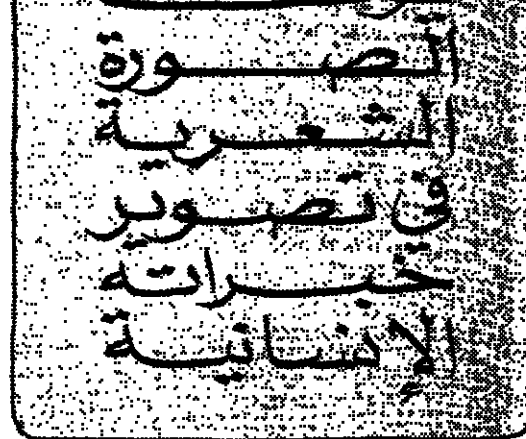 الصورة
الشعرية
فى تصوير
خبراته
الإنسانية